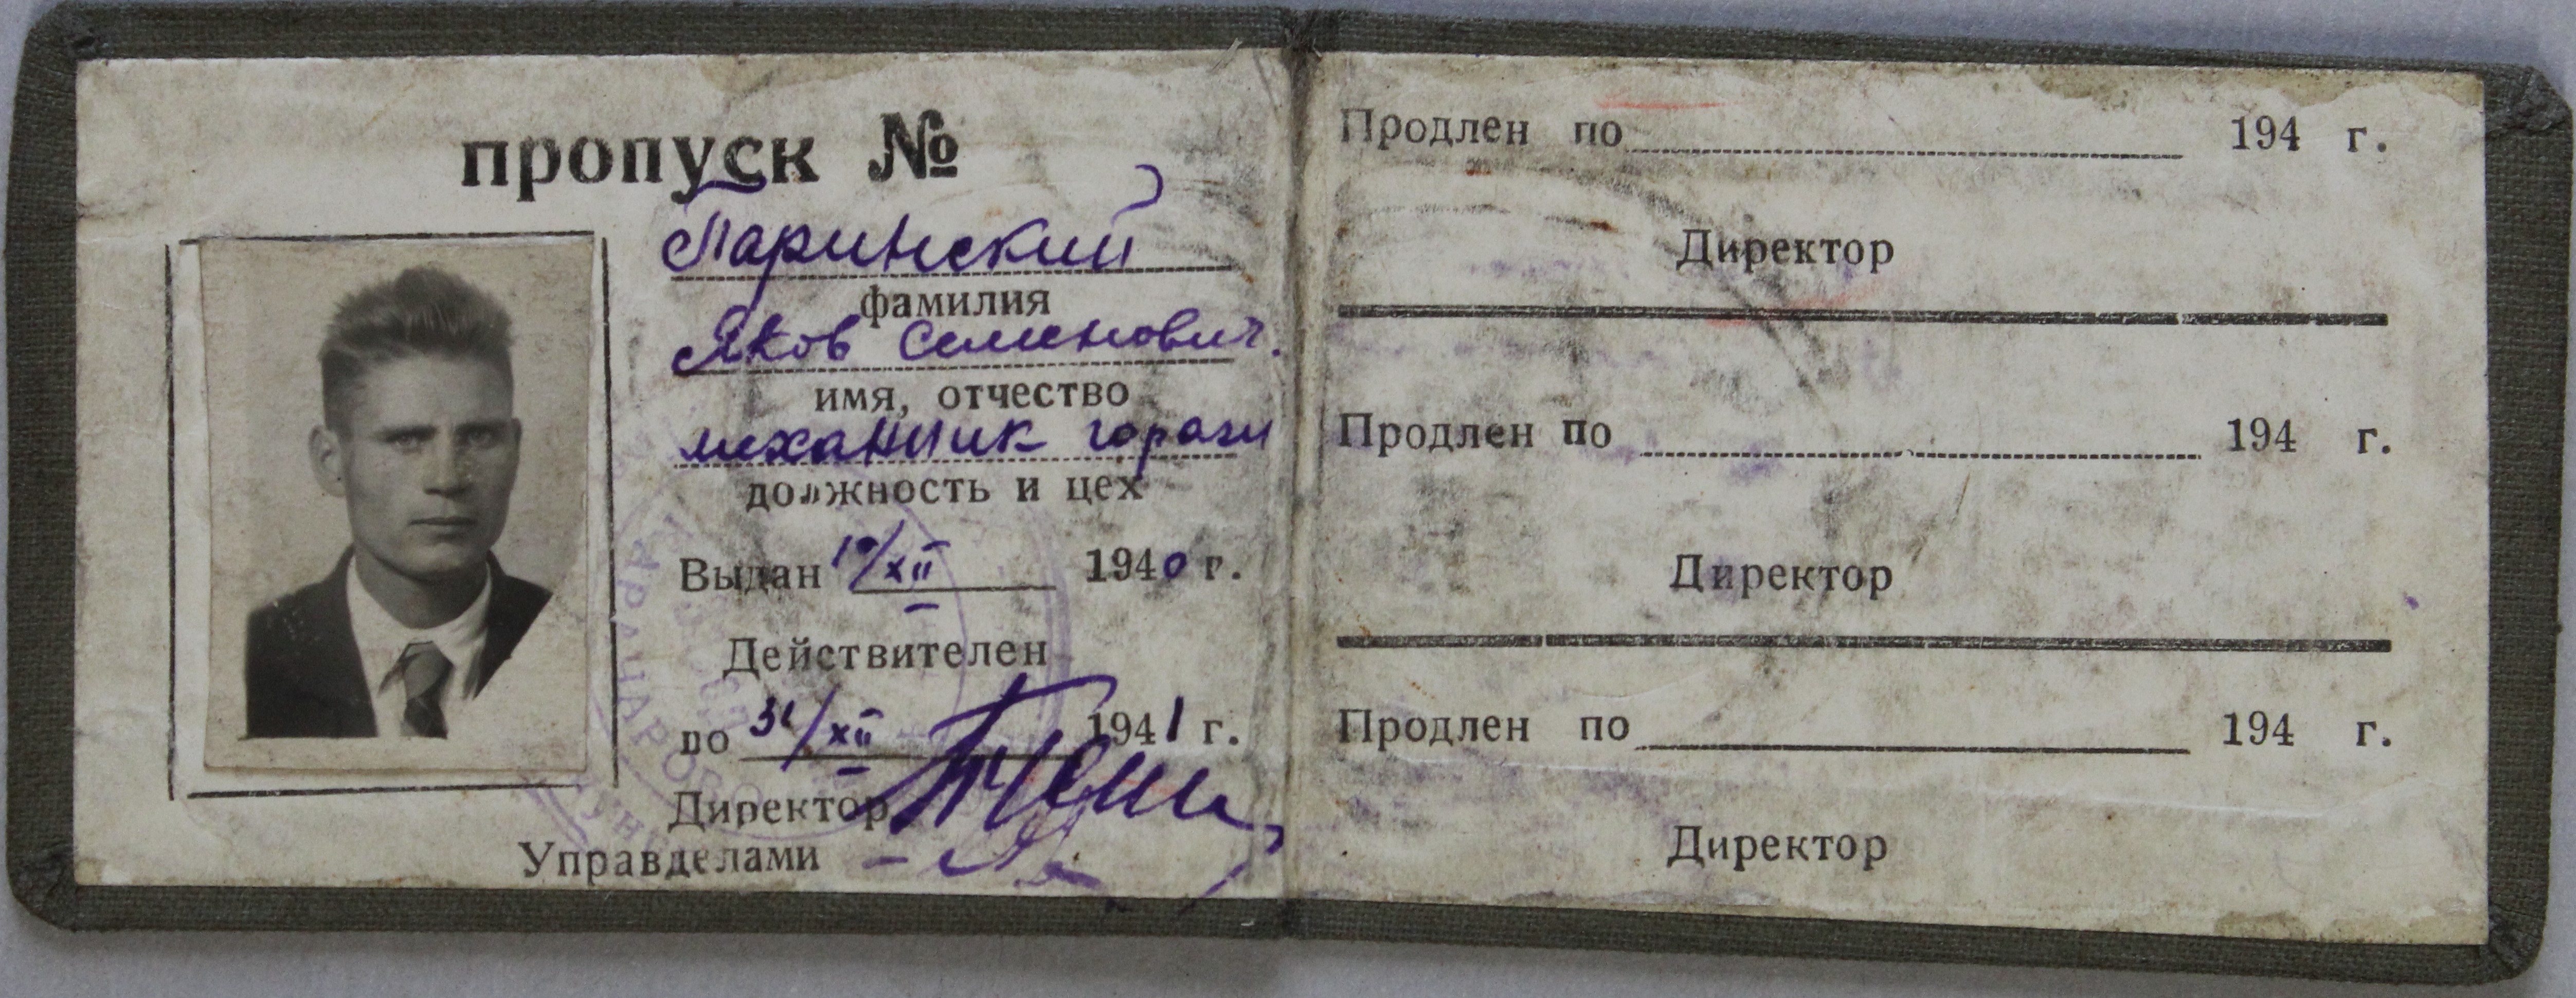 пропуск №
Паринский
фамилия
Яков Семенович.
имя, отчество
механик горажи
должность и цех
Выдан 10/XII 1940 г.
Действителен
по 31/XII 1941 г.
Директор
Управделами
Продлен по 194 г.
Директор
Продлен по 194 г.
Директор
Продлен по 194 г.
Директор